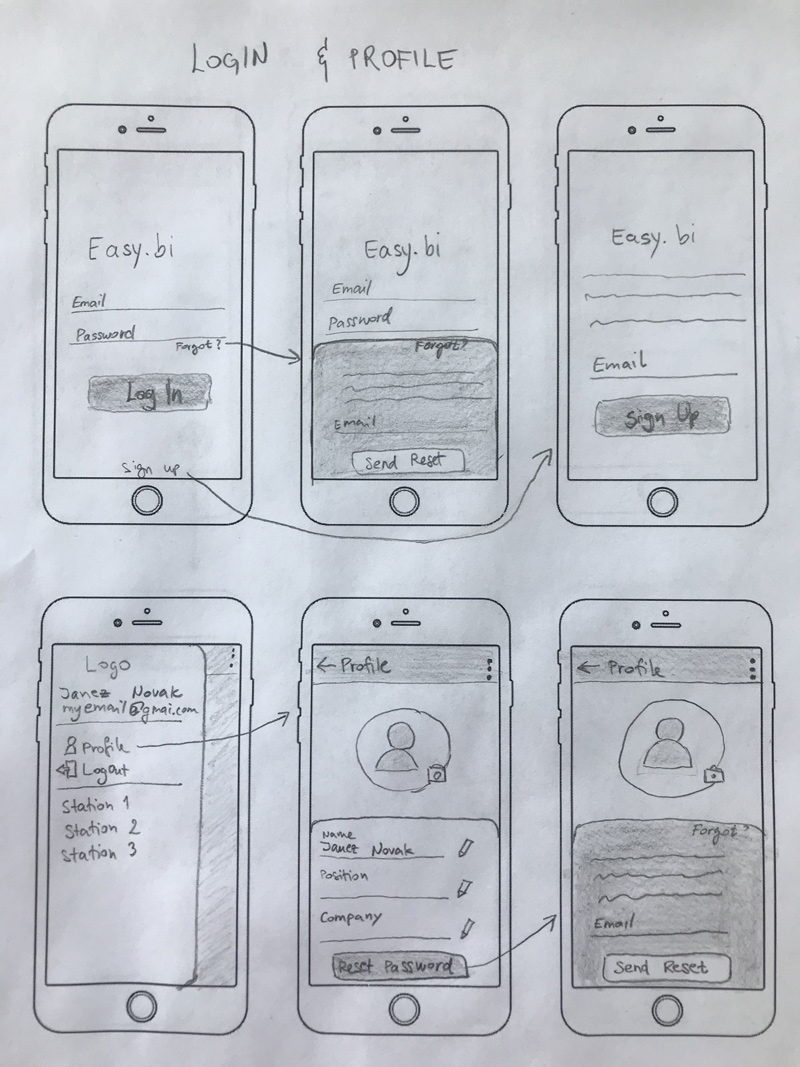 LOGIN & PROFILE
Easy.bi
Email
Password
Forgot?
Log In
Sign up
Easy.bi
Email
Password
Forgot?
Email
Send Reset
Easy.bi
Email
Sign Up
Logo
Janez Novak
myemail@gmai.com
Profile
Logout
Station 1
Station 2
Station 3
Profile
Name
Janez Novak
Position
Company
Reset Password
Profile
Forgot?
Email
Send Reset